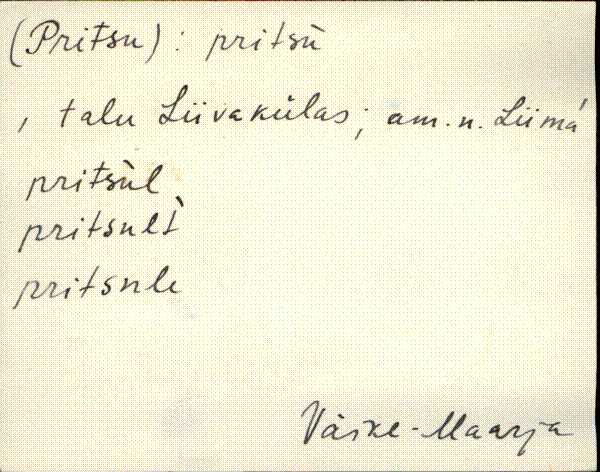 (Pritsu) : pritsù
, talu Liivakülas; am. n. Liimá
pritsùl
pritsult̀
pritsule
Väike-Maarja